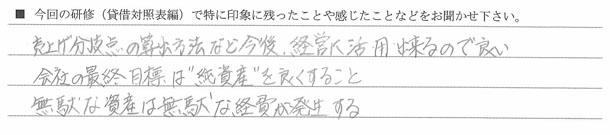 ■ 今回の研修（貸借対照表編）で特に印象に残ったことや感じたことなどをお聞かせ下さい。
売上げ分岐点の算出方法など今後、経営に活用出来るので良い
会社の最終目標は"純資産"を良くすること
無駄な資産は無駄な経費が発生する